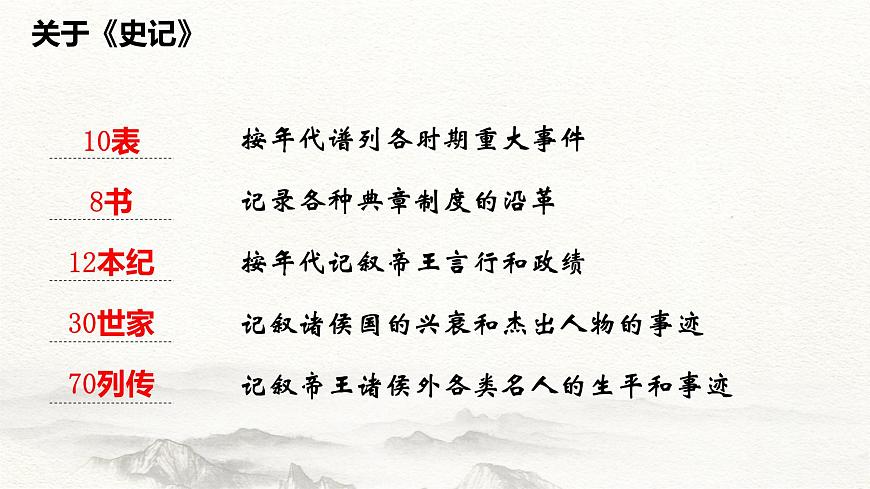 关于《史记》
10表 按年代谱列各时期重大事件
8书 记录各种典章制度的沿革
12本纪 按年代记叙帝王言行和政绩
30世家 记叙诸侯国的兴衰和杰出人物的事迹
70列传 记叙帝王诸侯外各类名人的生平和事迹